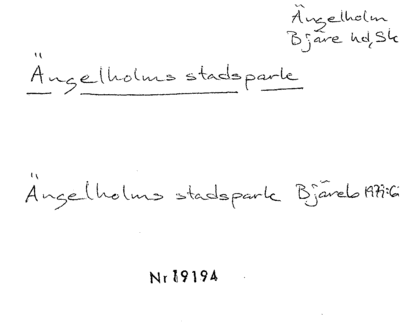 Ängelholm
Bjäre hd, Sk
Ängelholms stadspark
Ängelholms stadspark Bjäreb 1979:6
Nr 19194